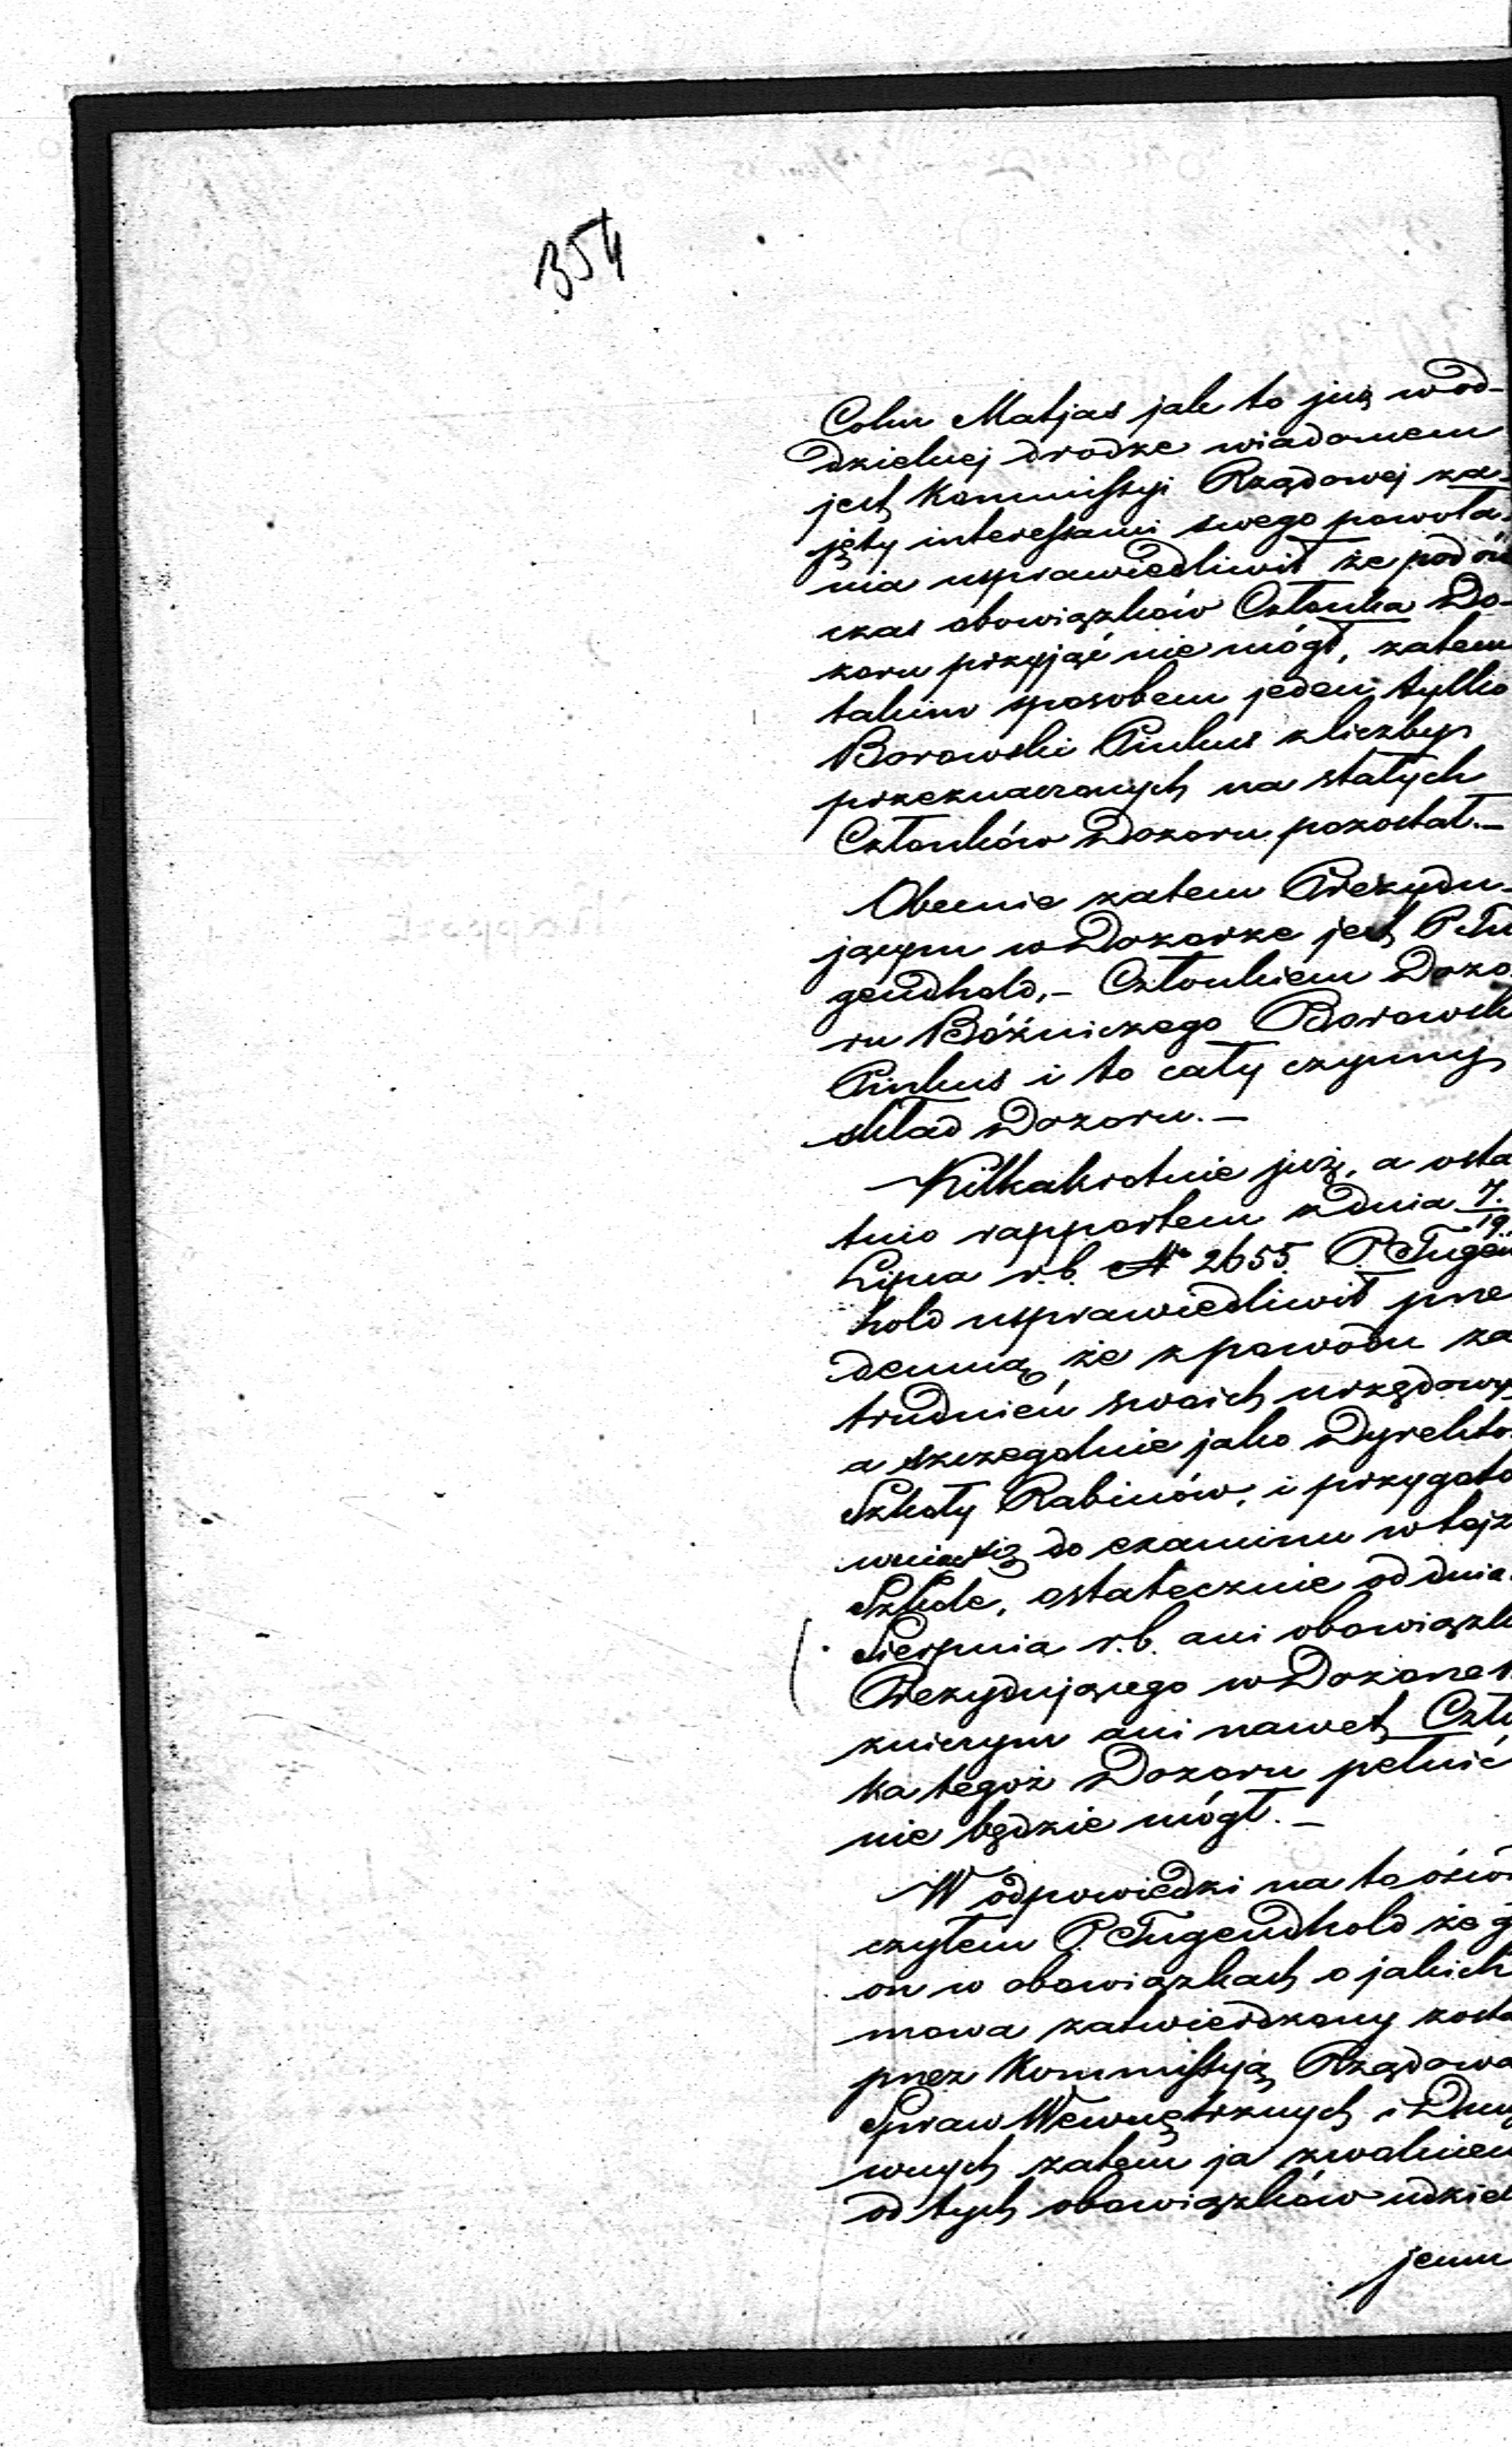 354
Cohn Matjas jak to już w od-
dzielnej drodze wiadomem
jest Kommissyi Rządowej za-
jęty interessami swego powoła-
nia usprawiedliwił że podów
czas obowiązków Członka Do-
zoru przyjąć nie mógł, zatem
takim sposobem jeden tylko
Borowski Pinkus z liczby
przeznaczonych na stałych
Członków Dozoru pozostał.—
Obecnie zatem Prezydu-
jącym w Dozorze jest P. Tu
gendhold,— Członkiem Dozo
ru Bóźniczego Borowsk
Pinkus i to cały czynny
skład Dozoru.—
Kilkakrotnie już, a osta
tnio rapportem z dnia 7/19
Lipca r.b. № 2655. P. Tugen
hold usprawiedliwił prze
demną że z powodu za
trudnień swoich urzędowy
a szczegolnie jako Dyrekto
Szkoły Rabinów, i przygoto
wnia się do examinu w tejż
Szkole, ostatecznie od dnia
Sierpnia r.b. ani obowiązk
Prezydującego w Dozorze
zniczym ani nawet Czło
ka tegoż Dozoru pełnić
nie będzie mógł.—
W odpowiedzi na to oświa
czyłem P. Tugendhold że g
on w obowiązkach o jakich
mowa zatwierdzony zosta
przez Kommissyją Rządowa
Spraw Wewnętrznych i Duc
wnych zatem ja zwolnien
od tych obowiązków udziel
jemu